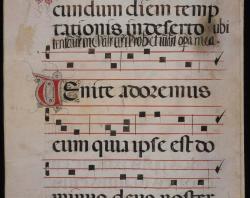 cundum diem temp
tationis in deserto ubi
tentaverunt me patres vestri probaverunt et viderunt opera mea
Venite adoremus
cum quia ipse est do
minus deus noster